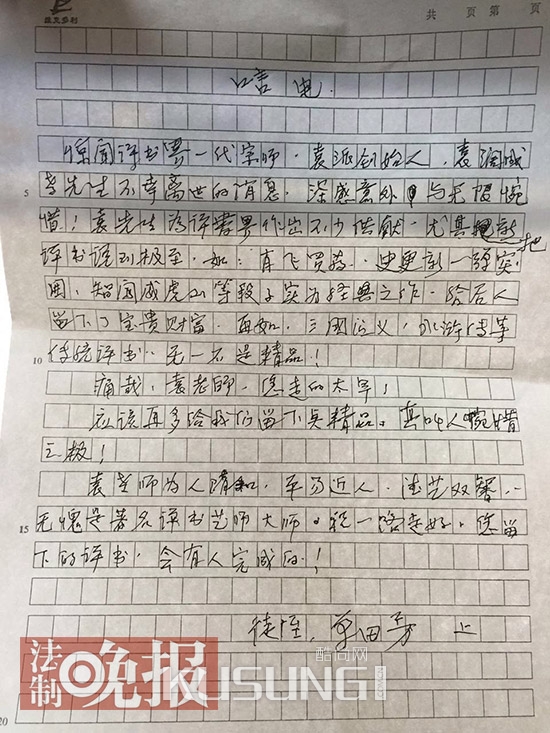 共 页 第 页
唁电.
惊闻评书界一代宗师、袁派创始人、袁阔成
5 老先生不幸离世的消息、深感意外、与无限惋
惜!袁先生为评书界作出不少供献、尤其新
把
评书说到极至、如:肖飞买药、史更新一弹突
围、智闯威虎山等段子实为经典之作、给后人
留下了宝贵财富、再如、三国演义、水浒传等
10 传统评书、无一不是精品!
痛哉、袁老师、您走的太早!
应该再多给我们留下点精品。真叫人惋惜
之极!
袁老师为人随和、平易近人、德艺双馨、
15 无愧是著名评书艺师大师。祝一路走好。您留
下的评书、会有人完成的!
徒侄、单田芳 上
法制晚报
酷尚网
KUSUNG
20